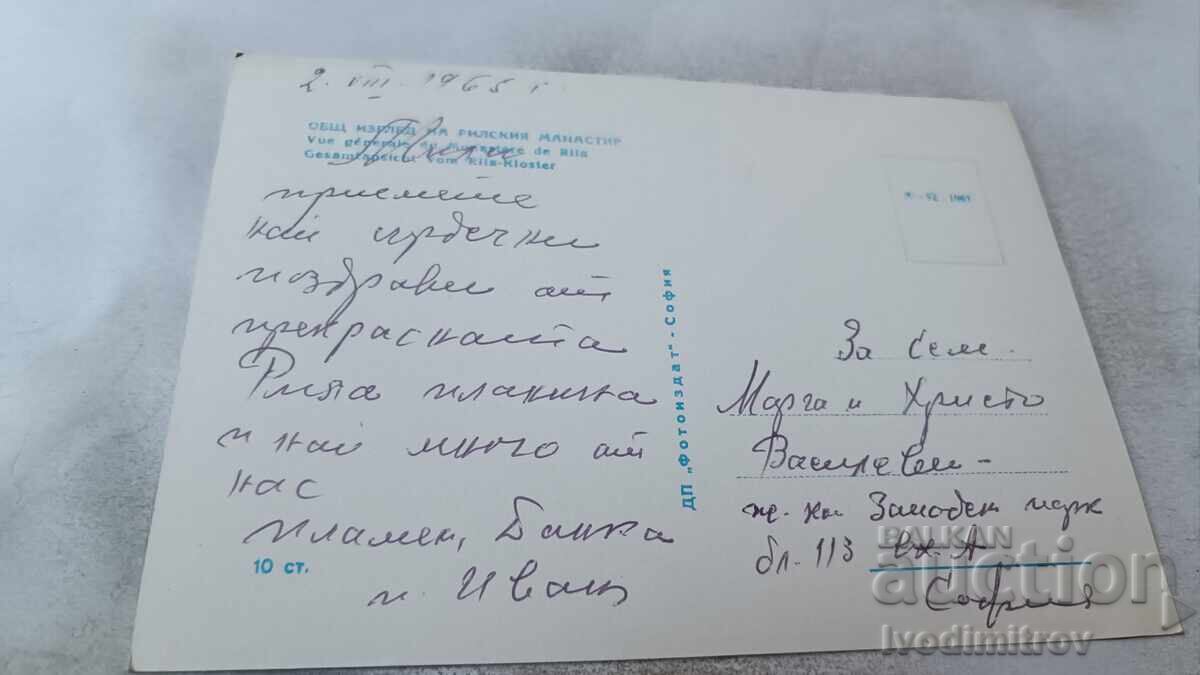 2. VIII. 1965 г.
ОБЩ ИЗГЛЕД НА РИЛСКИЯ МАНАСТИР
Vue générale du Monastère de Rila
Gesamtansicht vom Rila-Kloster
приемете
най сърдечни
поздрави от
прекрасната
Рила планина
и най много от
нас
Пламен, Банка
и Иван
10 ст.
ДП „Фотоиздат" - София
За Сем.
Марга и Христо
Василеви -
Западен парк
бл. 113 вх. А
София
BALKAN
auction
Ivodimitrov